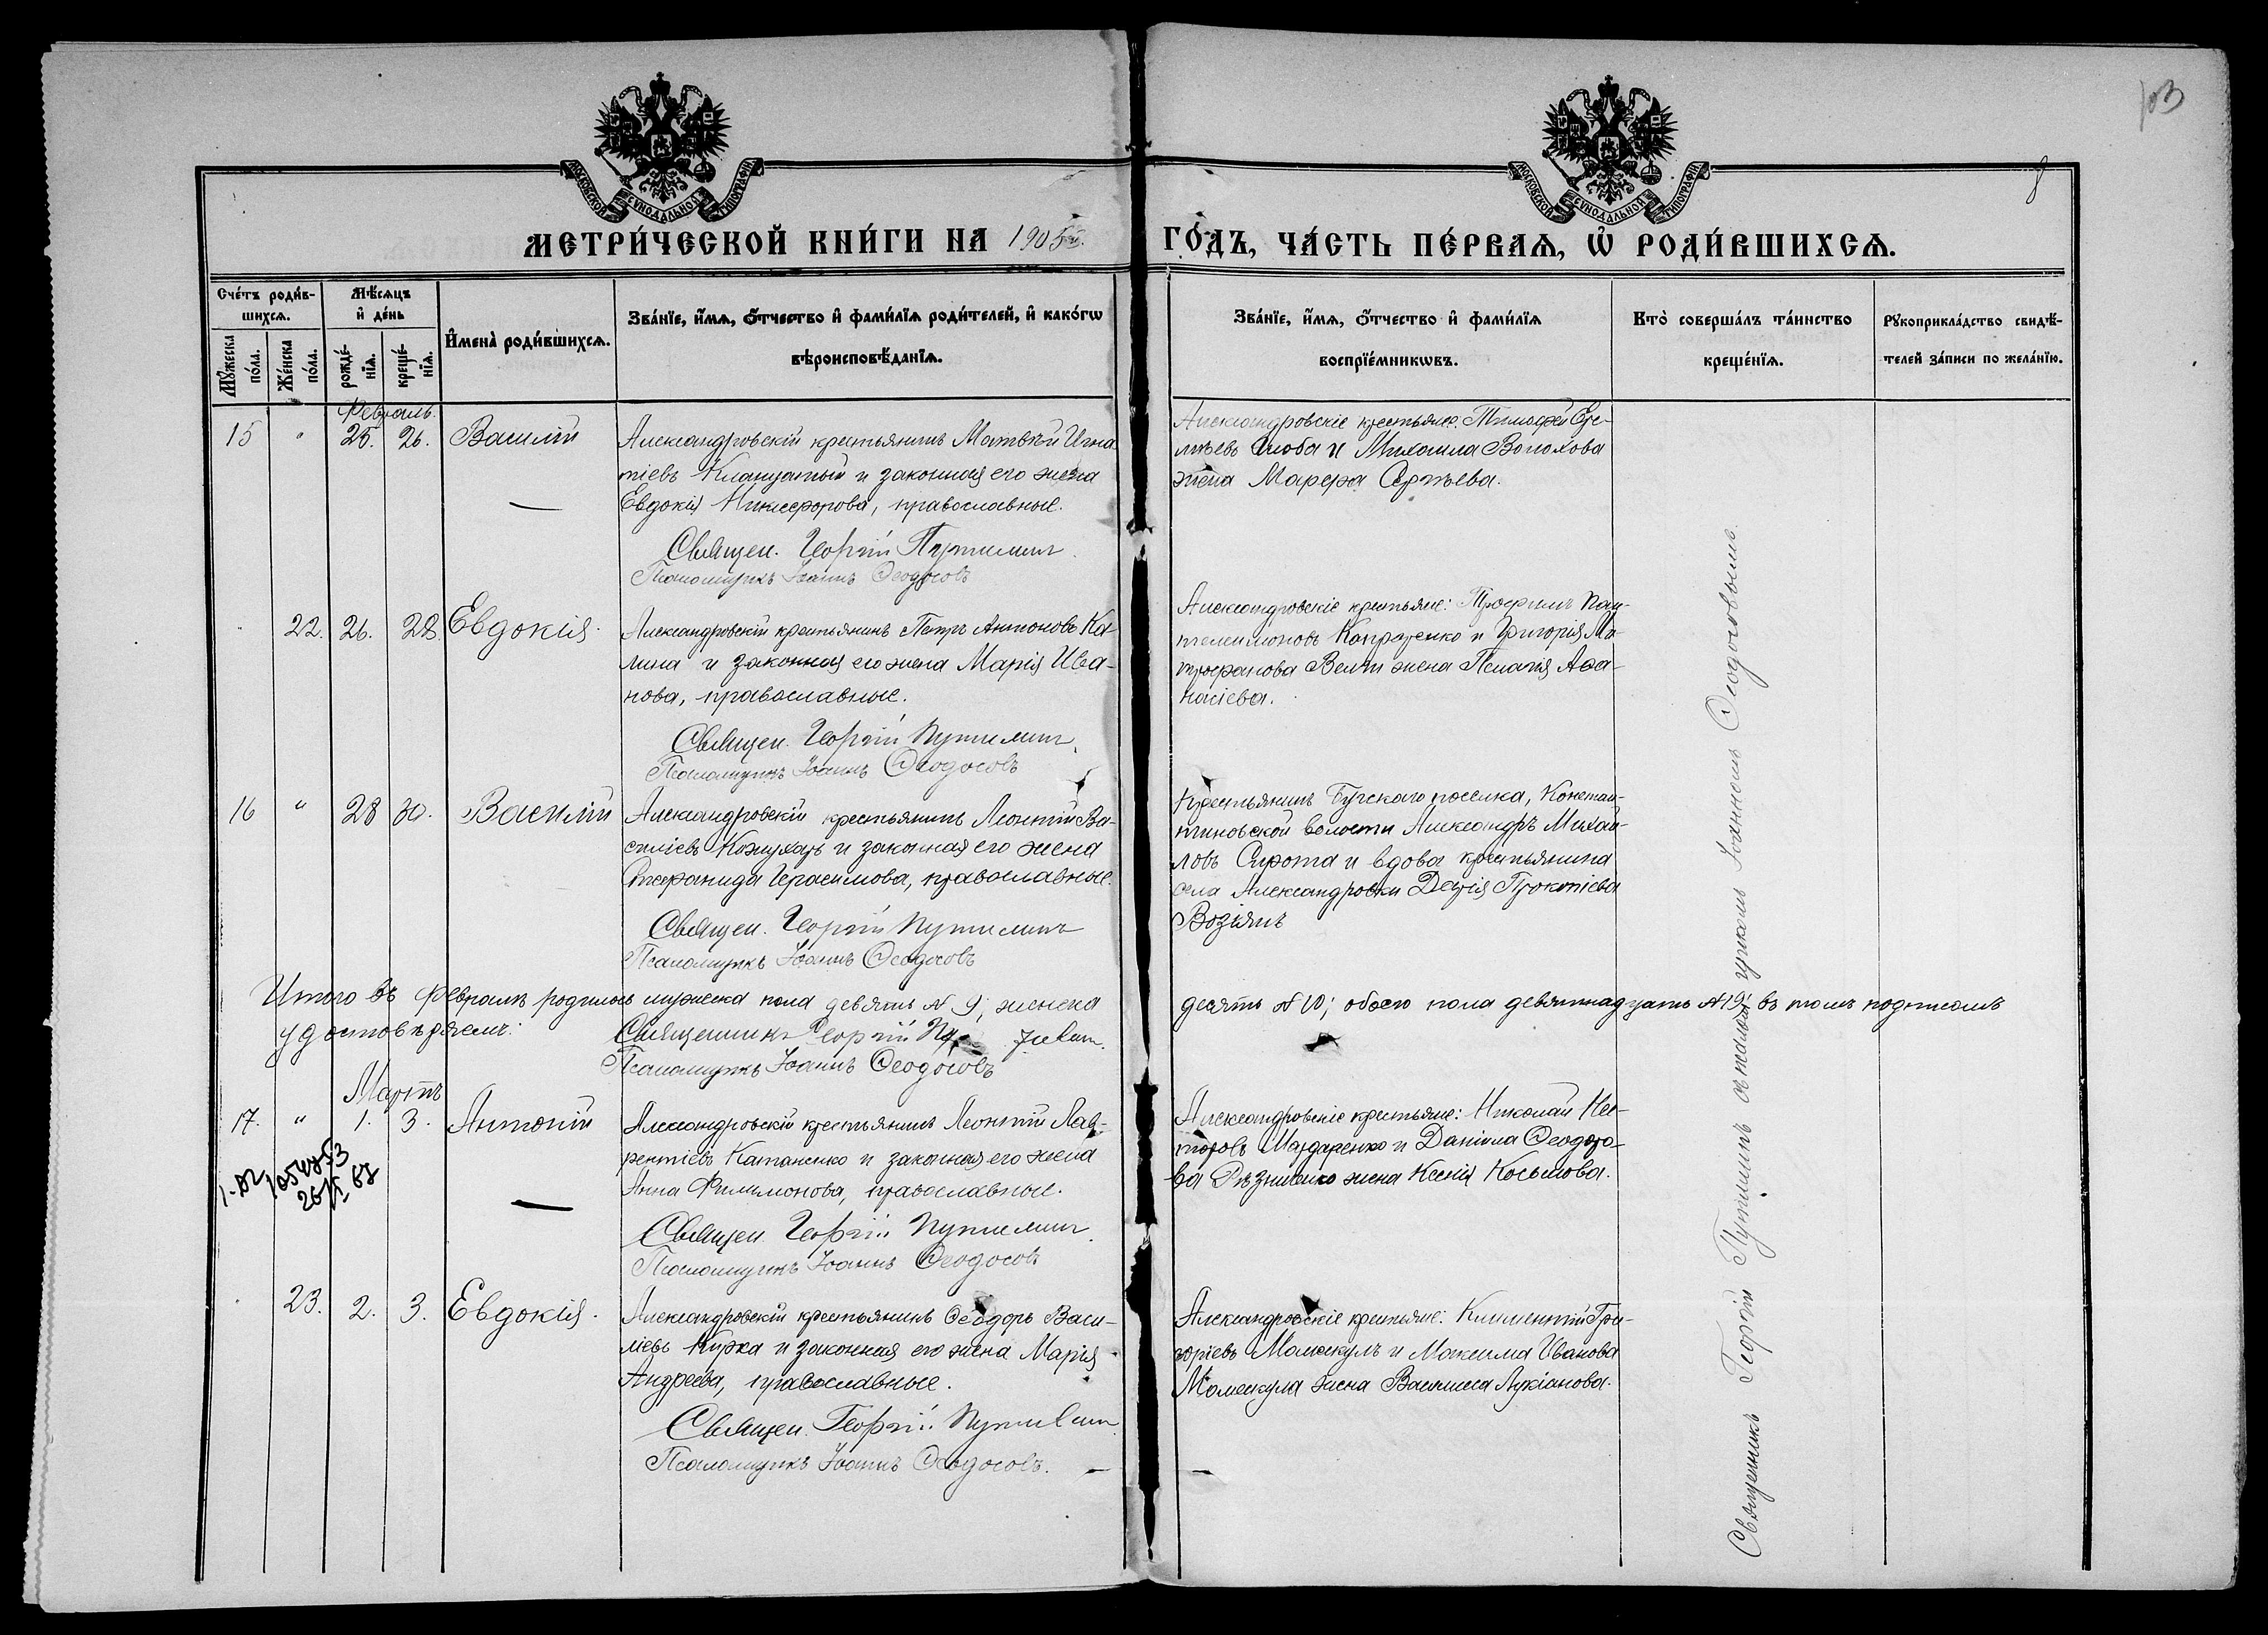 103
8
МОСКОВСКОЙ СѴНОДАЛЬНОЙ ТИПОГРАФІИ
МОСКОВСКОЙ СѴНОДАЛЬНОЙ ТИПОГРАФІИ
МЕТРИ́ЧЕСКОЙ КНИ́ГИ НА 1905й. ГО́ДЪ, ЧА́СТЬ ПЕ́РВАѦ, Ѡ҆ РОДИ́ВШИХСѦ.
Сче́тъ роди́в-
шихсѧ.
Мꙋ́жеска по́ла.
Же́нска по́ла.
Мѣ́сѧцъ
и҆ де́нь
рожде́-
нїѧ.
креще́-
нїѧ.
И҆мена̀ роди́вшихсѧ.
Зва́нїе, и҆́мѧ, ѻ҆́тчество и҆ фами́лїѧ роди́телей, и҆ како́гѡ
вѣроисповѣ́данїѧ.
Зва́нїе, и҆́мѧ, ѻ҆́тчество и҆ фами́лїѧ
воспрїе́мникѡвъ.
Кто̀ соверша́лъ та́инство
креще́нїѧ.
Рꙋкоприкла́дство свидѣ́-
телей за́писи по жела́нїю.
Февраль.
15 " 25. 26. Василій
Александровскій крестьянинъ Матвѣй Игна-
тіевъ Клацатый и законная его жена
Евдокія Никифорова, православные.
Священ. Георгій Путилин
Псаломщикъ Іоаннъ Ѳеодосовъ
Александровскіе крестьяне: Тимофей
и Михаила Волохова
жена Марфа Сергѣева.
22. 26. 28. Евдокія.
Александровскій крестьянинъ Петръ Антоновъ Ка-
лина и законная его жена Марія Ива-
нова, православные.
Священ. Георгій Путилин
Псаломщикъ Іоаннъ Ѳеодосовъ
Александровскіе крестьяне: Трофимъ Пан-
телеимоновъ и Григорія Ми-
трофанова жена Пелагія Аѳа-
насіева.
16 " 28 30. Василій
Александровскій крестьянинъ Леонтій Ва-
силіевъ Кожухарь и законная его жена
Стефанида Герасимова, православные.
Священ. Георгій Путилинъ
Псаломщикъ Іоаннъ Ѳеодосовъ
Крестьянинъ Бугскаго поселка, Констан-
тиновской волости Александръ Михай-
ловъ Сирота и вдова крестьянина
села Александровки Дарія Прокопіева
Возіянъ
Итого въ Февралѣ родилось мужеска пола девять № 9; женска десять № 10; обоего пола девятнадцать № 19; въ томъ подписомъ
удостовѣряемъ:
Священникъ Георгій Путилин.
Псаломщикъ Іоаннъ Ѳеодосовъ
Мартъ
17. " 1. 3. Антоній
Александровскій крестьянинъ Леонтій Лав-
рентіевъ Катаненко и законная его жена
Анна Филимонова, православные.
Священ Георгій Путилин.
Псаломщикъ Іоаннъ Ѳеодосовъ
Александровскіе крестьяне: Николай Нес-
торовъ Маздаренко и Даніила Ѳеодоро-
ва Рѣзниченко жена Ксенія Косьмова.
23. 2. 3. Евдокія.
Александровскій крестьянинъ Ѳеодоръ Васи-
ліевъ Курка и законная его жена Марія
Андреева, православные.
Священ. Георгій Путилин
Псаломщикъ Іоаннъ Ѳеодосовъ.
Александровскіе крестьяне: Климентій Гри-
горіевъ Момоскулъ и Максима Иванова
Момоскула жена Василиса Лукіанова.
Священникъ Георгій Путилинъ съ псаломщикомъ Іоанномъ Ѳеодосовымъ.